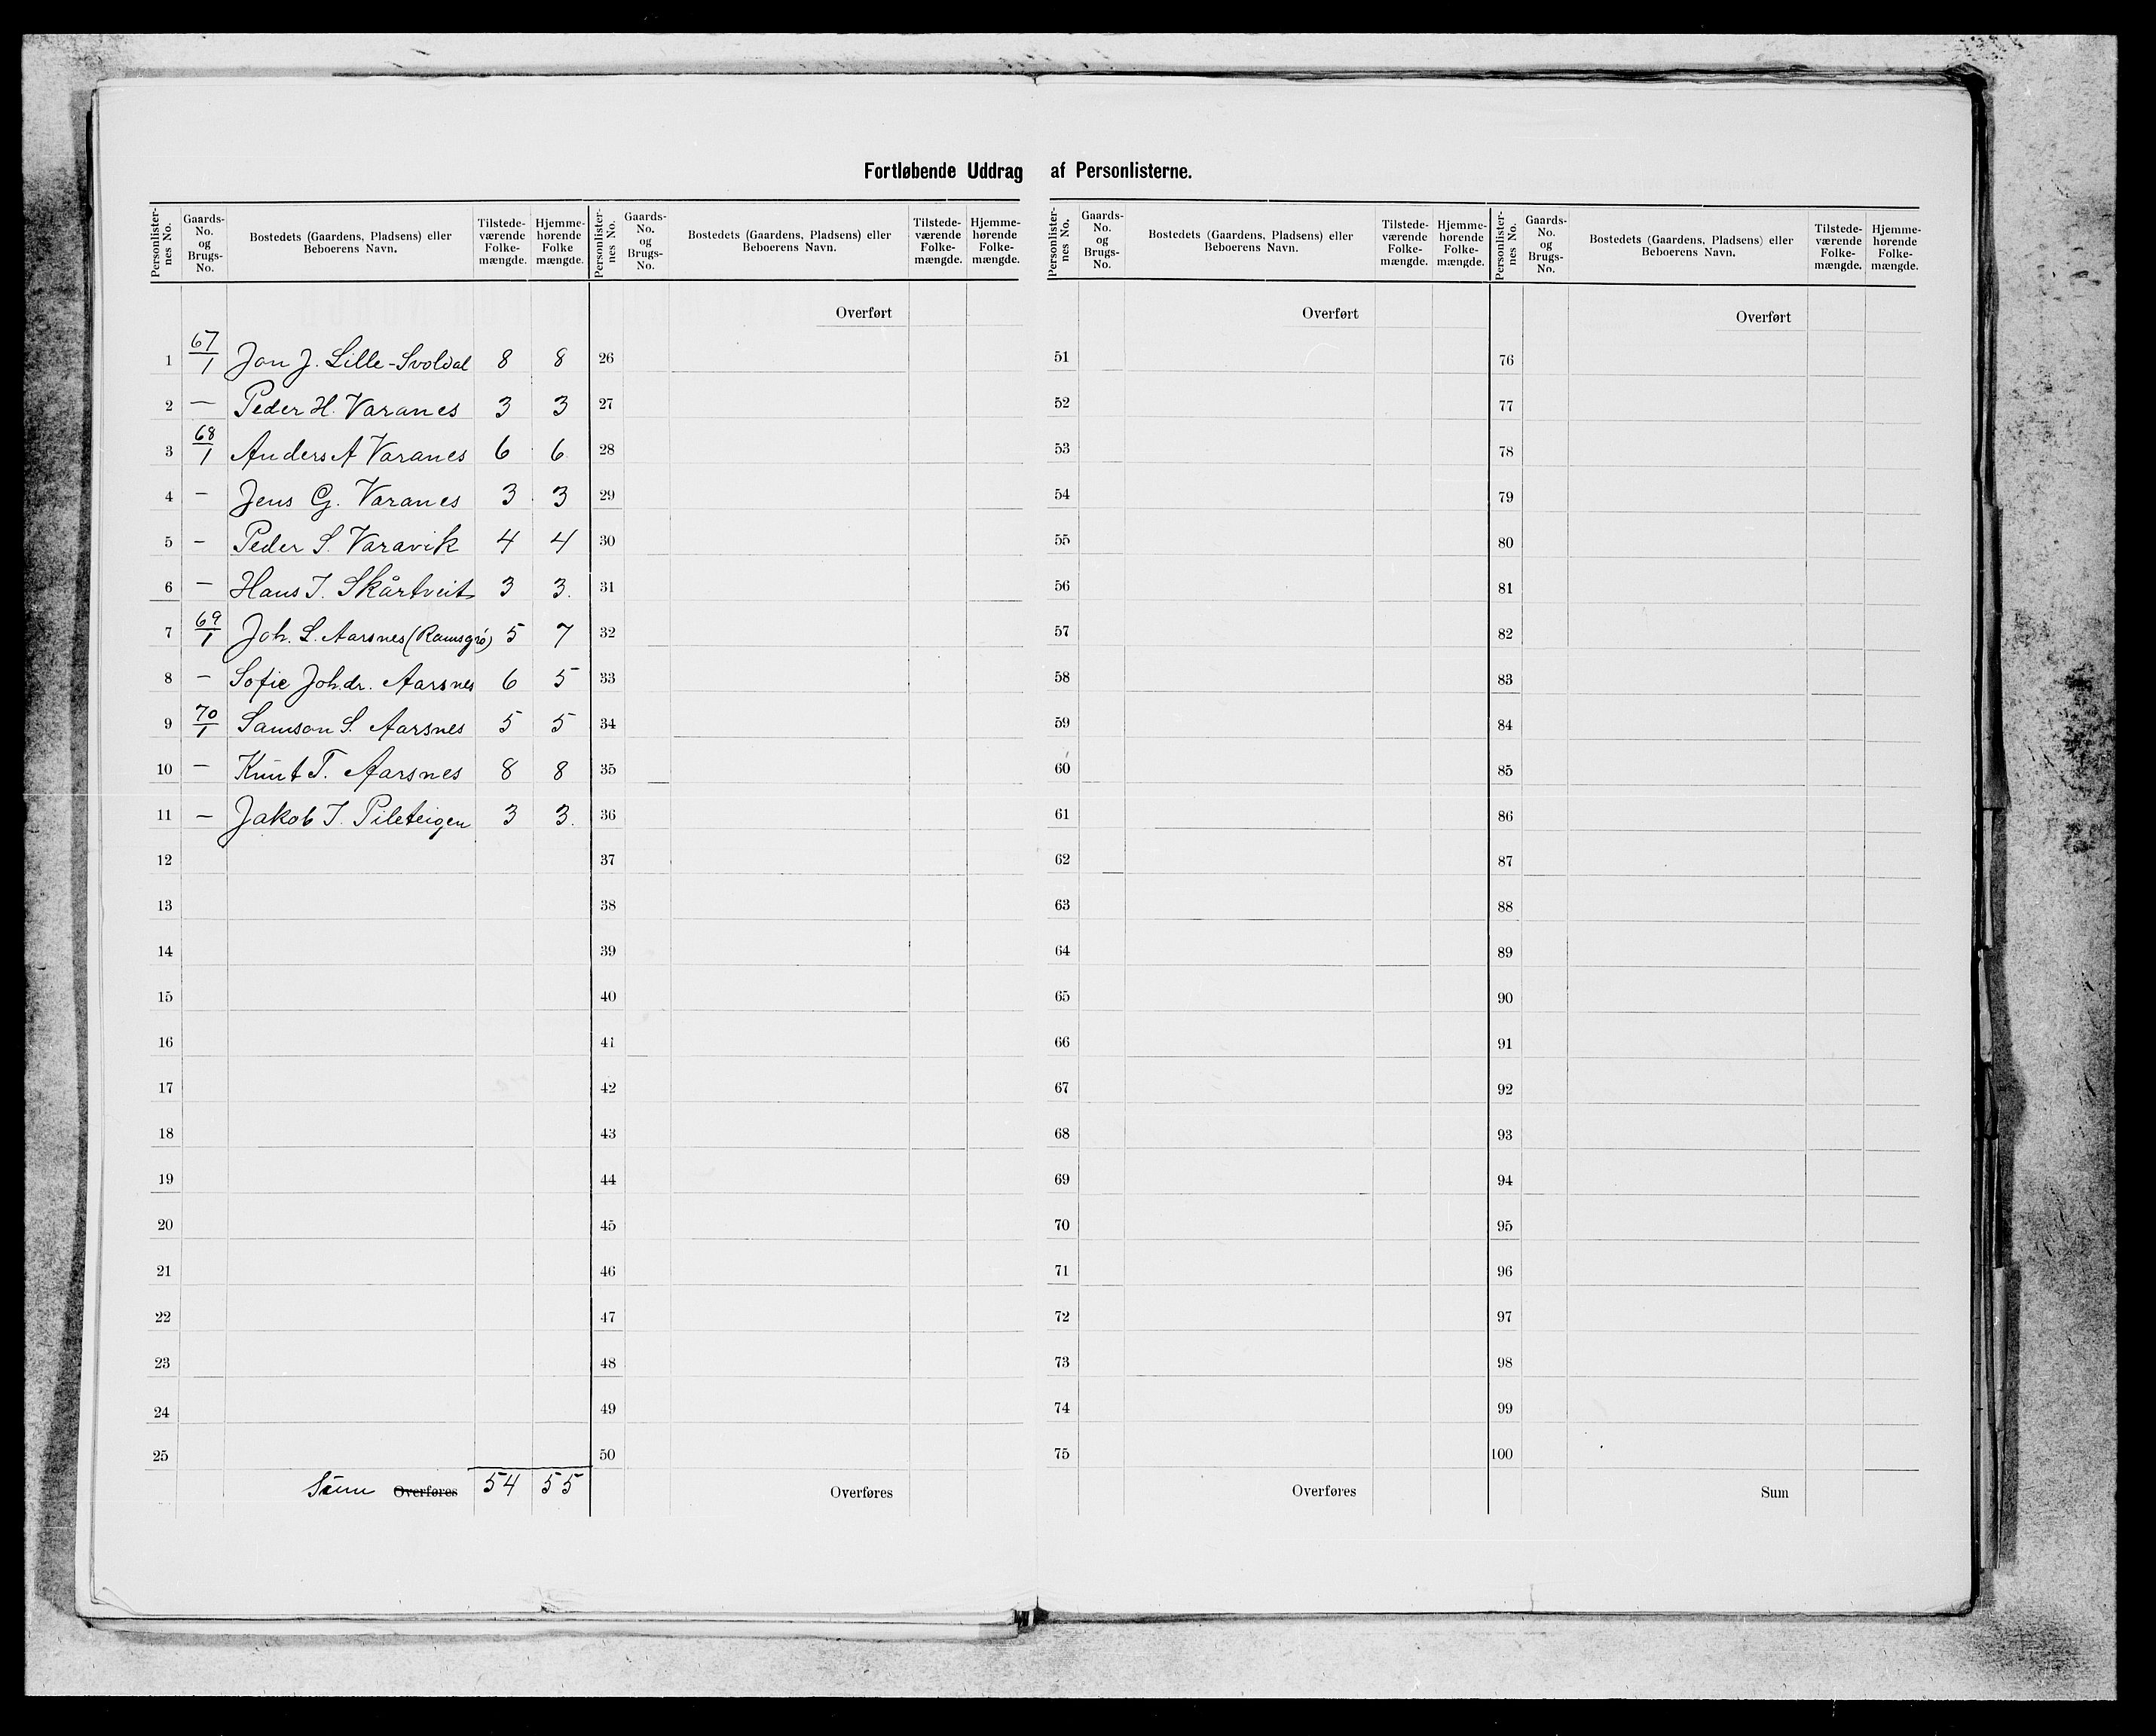 Fortløbende Uddrag af Personlisterne.
Personlister-nes No. | Gaards-No. og Brugs-No. | Bostedets (Gaardens, Pladsens) eller Beboerens Navn. | Tilstede-værende Folke-mængde. | Hjemme-hørende Folke mængde.
1 67/1 Jon J. Lille-Svoldal 8 8
2 — Peder H. Varanes 3 3
3 68/1 Anders A Varanes 6 6
4 - Jens G. Varanes 3 3
5 - Peder S. Varavik 4 4
6 — Hans J. Skårtveit 3 3.
7 69/1 Joh. L. Aarsnes (Ramsgrø) 5 7
8 — Sofie Joh.dr. Aarsnes 6 5
9 70/1 Samson S. Aarsnes 5 5
10 — Knut T. Aarsnes 8 8
11 — Jakob J. Pileteigen 3 3.
12
13
14
15
16
17
18
19
20
21
22
23
24
25
Sum Overføres 54 55
Personlister-nes No. | Gaards-No. og Brugs-No. | Bostedets (Gaardens, Pladsens) eller Beboerens Navn. | Tilstede-værende Folke-mængde. | Hjemme-hørende Folke-mængde.
Overført
26
27
28
29
30
31
32
33
34
35
36
37
38
39
40
41
42
43
44
45
46
47
48
49
50
Overføres
Personlister-nes No. | Gaards-No. og Brugs-No. | Bostedets (Gaardens, Pladsens) eller Beboerens Navn. | Tilstede-værende Folke-mængde. | Hjemme-hørende Folke-mængde.
Overført
51
52
53
54
55
56
57
58
59
60
61
62
63
64
65
66
67
68
69
70
71
72
73
74
75
Overføres
Personlister-nes No. | Gaards-No. og Brugs-No. | Bostedets (Gaardens, Pladsens) eller Beboerens Navn. | Tilstede-værende Folke-mængde. | Hjemme-hørende Folke-mængde.
Overført
76
77
78
79
80
81
82
83
84
85
86
87
88
89
90
91
92
93
94
95
96
97
98
99
100
Sum